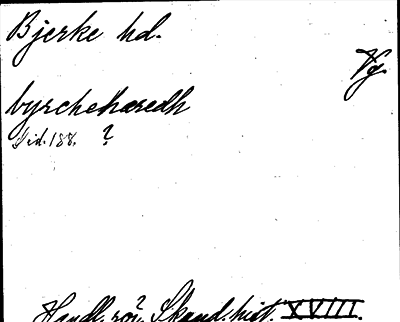 Bjerke hd.
Vg.
byrchehæredh
Sid. 188. ?
Handl. rör? Skand. hist. XVIII.